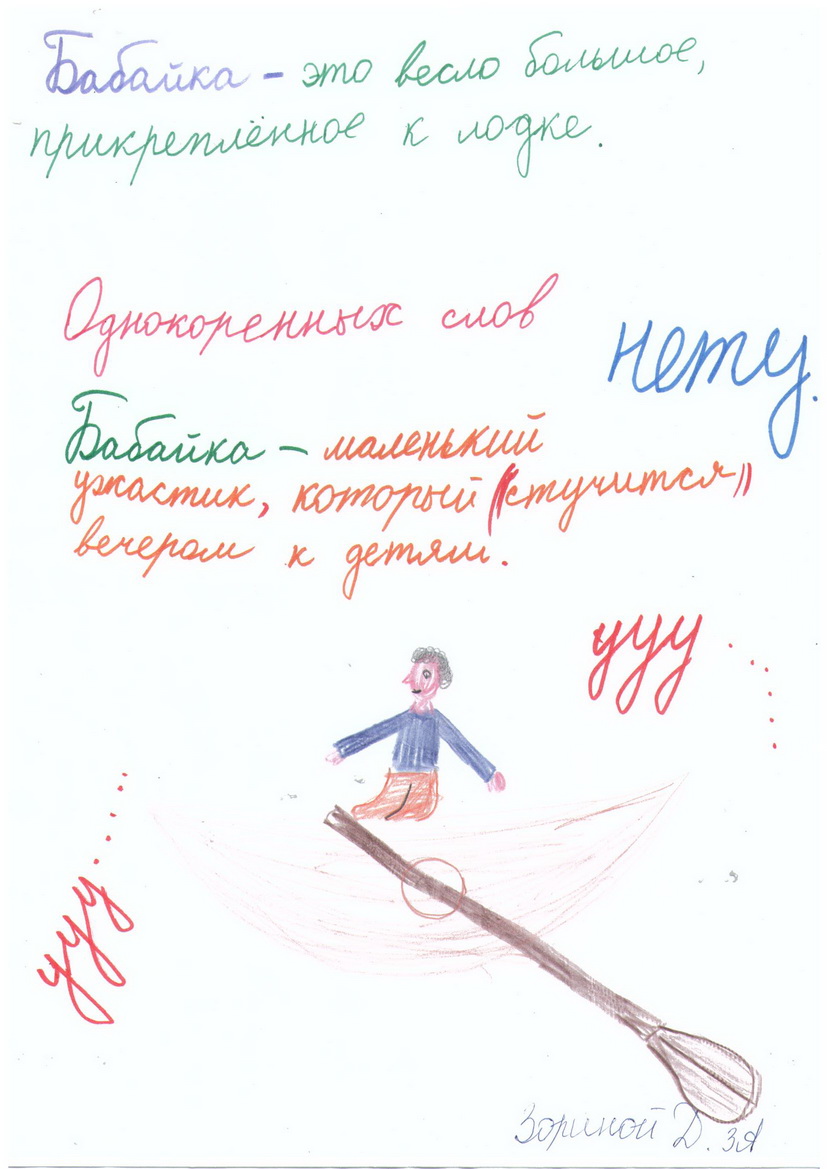 Бабайка – это весло большое,
прикреплённое к лодке.
Однокоренных слов
нету.
Бабайка – маленький
ужастик, который "стучится"
вечером к детям.
ууу.....
ууу.....
Зориной Д. 3А